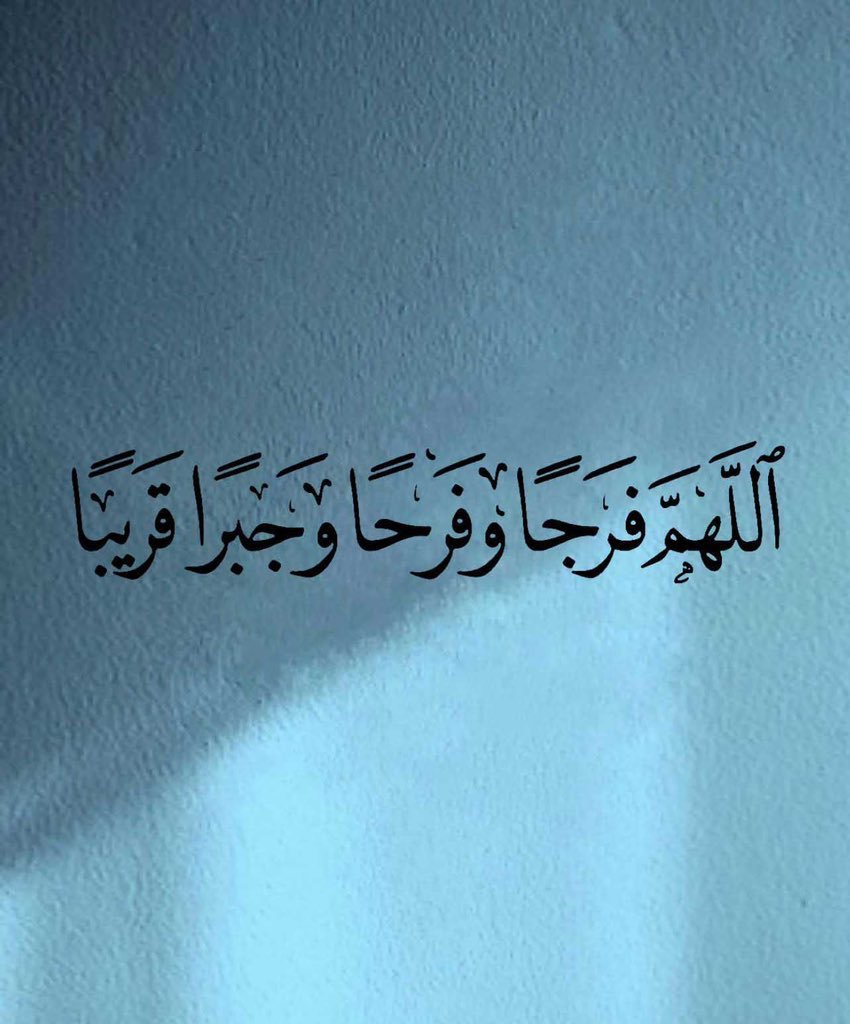 ٱللَّهُمَّ فَرَجًا وَفَرَحًا وَجَبرًا قَريبًا